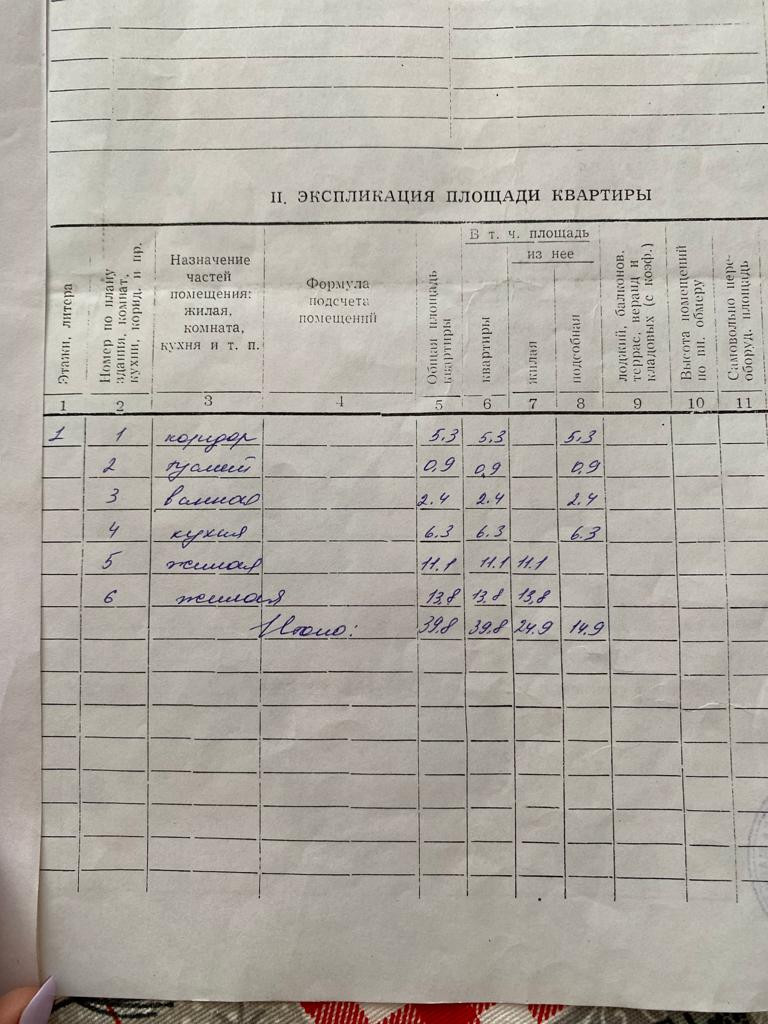 II. ЭКСПЛИКАЦИЯ ПЛОЩАДИ КВАРТИРЫ
Этажи, литера
Номер по плану здания, комнат, кухни, корид. и пр.
Назначение
частей
помещения:
жилая,
комната,
кухня и т. п.
Формула
подсчета
помещений
Общая площадь квартиры
В т. ч. площадь
квартиры
из нее
жилая
подсобная
лоджий, балконов, террас, веранд и кладовых (с коэф.)
Высота помещений по вн. обмеру
Самовольно пере- оборуд. площадь
1 2 3 4 5 6 7 8 9 10 11
1 1 коридор 5.3 5.3 5.3
2 туалет 0,9 0,9 0,9
3 ванная 2.4 2.4 2.4
4 кухня 6.3 6.3 6.3
5 жилая 11.1 11.1 11.1
6 жилая 13,8 13,8 13,8
Итого: 39.8 39.8 24.9 14.9